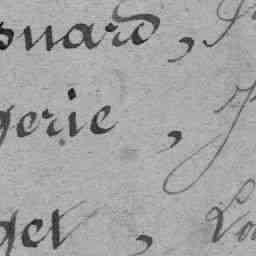 snard,
gerie, J
get, Lo